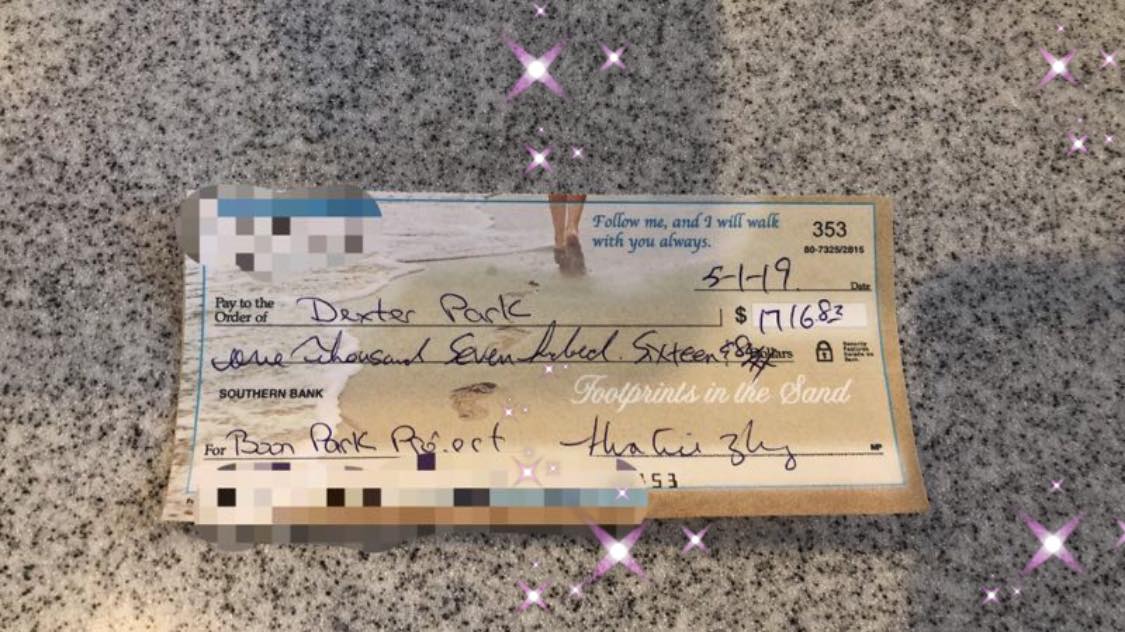 Follow me, and I will walk
with you always.
353
80-7325/2815
5-1-19
Date
Pay to the
Order of Dexter Park $ 171683
one Thousand Seven Sixteen & Dollars
Security
Features
Details on
Back.
SOUTHERN BANK
Footprints in the Sand
For Park
MP
153